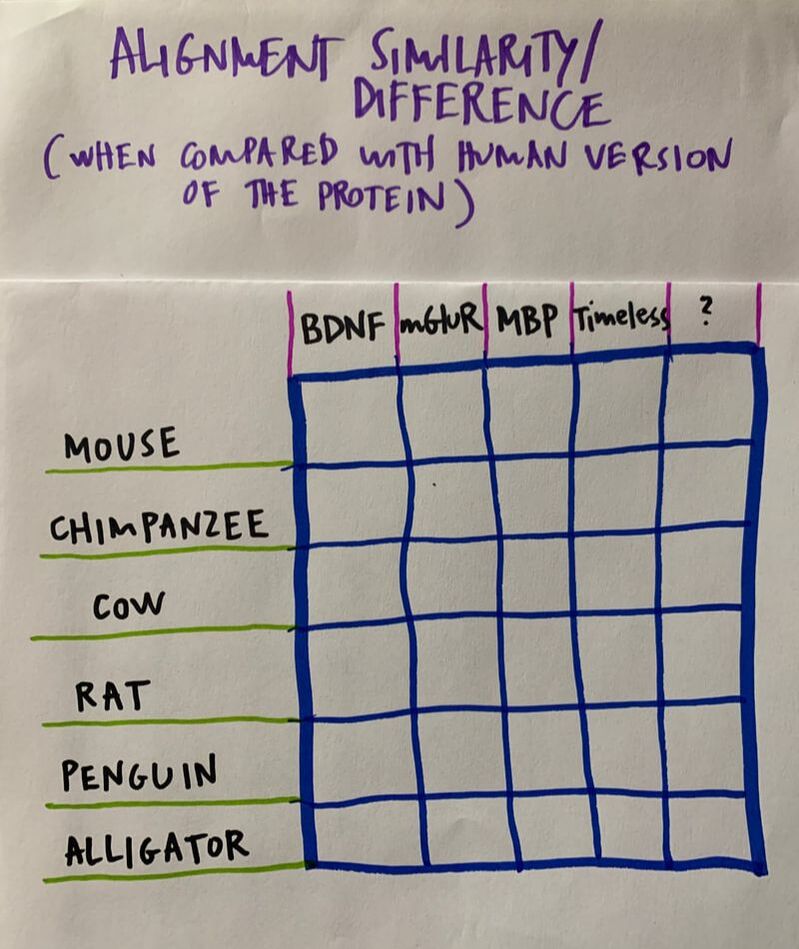 ALIGNMENT SIMILARITY/
DIFFERENCE
(WHEN COMPARED WITH HUMAN VERSION
OF THE PROTEIN)
BDNF mGluR MBP Timeless ?
MOUSE
CHIMPANZEE
COW
RAT
PENGUIN
ALLIGATOR